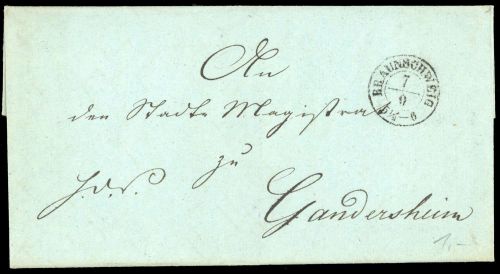 An
den Stadt Magistrat
zu
H.d.S.
Gandersheim
BRAUNSCHWEIG
7
9
1,-